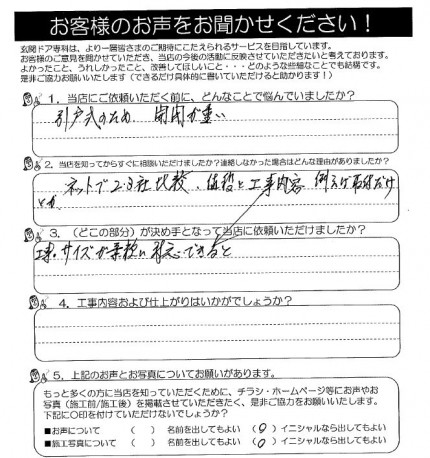 お客様のお声をお聞かせください！
玄関ドア専科は、より一層皆さまのご期待にこたえられるサービスを目指しています。
お客様のご意見を聞かせていただき、当店の今後の活動に反映させていただきたいと考えております。
よかったこと、うれしかったこと、改善してほしいこと・・・どのような些細なことでも結構です。
是非ご協力お願いいたします（できるだけ具体的に書いていただけると助かります！）
1．当店にご依頼いただく前に、どんなことで悩んでいましたか？
引戸式のため 開閉が重い
2．当店を知ってからすぐに相談いただけましたか？連絡しなかった場合はどんな理由がありましたか？
ネットで2・3社比較、価格と工事内容 例えば
3．（どこの部分）が決め手となって当店に依頼いただけましたか？
サイズが できると
4．工事内容および仕上がりはいかがでしょうか？
5．上記のお声とお写真についてお願いがあります。
もっと多くの方に当店を知っていただくために、チラシ・ホームページ等にお声やお
写真（施工前/施工後）を掲載させていただきたく、是非ご協力をお願いいたします。
下記に〇印を付けていただけないでしょうか？
■お声について （ ） 名前を出してもよい （○） イニシャルなら出してもよい
■施工写真について （ ） 名前を出してもよい （○） イニシャルなら出してもよい